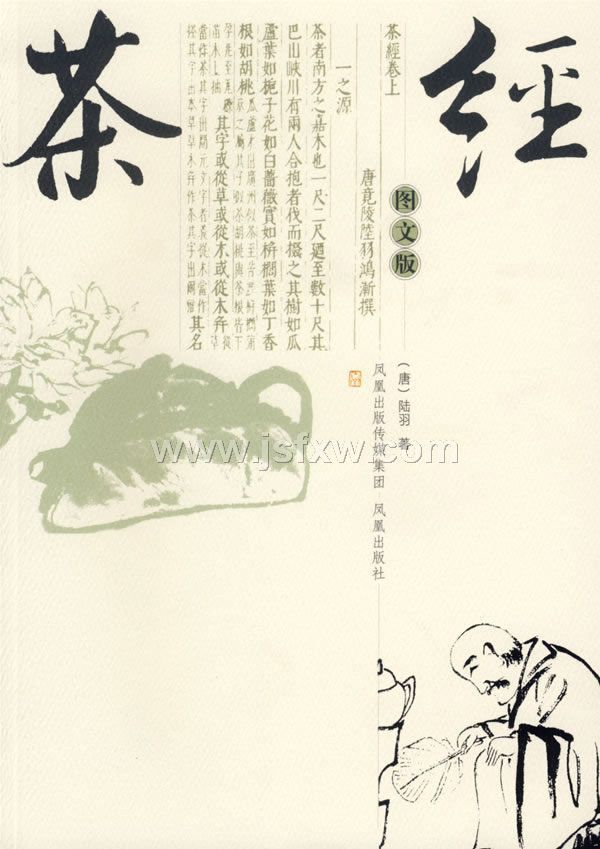 茶經
图文版
茶經卷上
唐竟陵陸羽鴻漸撰
一之源
茶者南方之嘉木也一尺二尺廼至數十尺其
巴山峽川有兩人合抱者伐而掇之其樹如瓜
蘆葉如梔子花如白薔薇實如栟櫚葉如丁香
根如胡桃
其字或從草或從木或從草木并
其名
(唐)陆羽 著
凤凰出版传媒集团 凤凰出版社
www.jsfxw.com